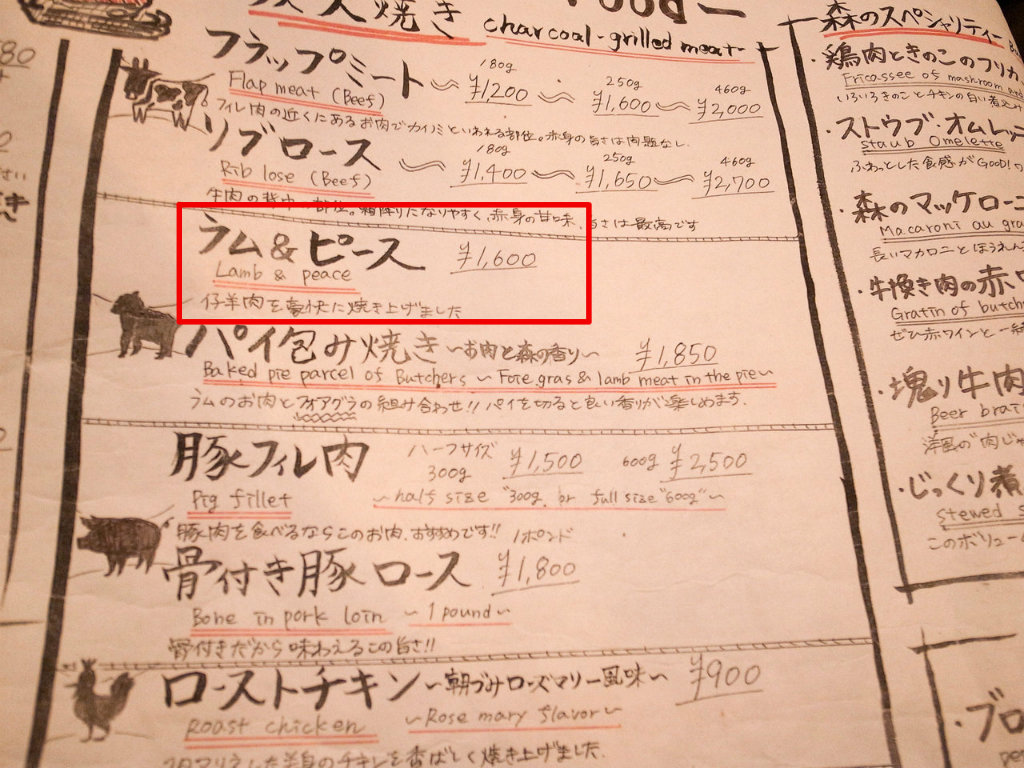 炭火焼き
Food
charcoal-grilled meat
フラップミート
180g
¥1,200
250g
¥1,600
460g
¥2,000
Flap meat (Beef)
フィレ肉の近くにあるお肉でカイノミといわれる部位。赤身の旨さは問題なし。
リブロース
180g
¥1,400
250g
¥1,650
460g
¥2,700
Rib lose (Beef)
牛肉の背中の部位。霜降りになりやすく、赤身の甘味、旨さは最高です
ラム&ピース ¥1,600
Lamb & peace
仔羊肉を豪快に焼き上げました
パイ包み焼き 〜お肉と森の香り〜 ¥1,850
Baked pie parcel of Butchers 〜Foie.gras & lamb meat in the pie〜
ラムのお肉とフォアグラの組み合わせ!! パイを切ると良い香りが楽しめます.
豚フィレ肉 ハーフサイズ 300g ¥1,500 600g ¥2,500
Pig fillet 〜half size "300g" or full size "600g"〜
豚肉を食べるならこのお肉、おすすめです!!
骨付き豚ロース 1ポンド ¥1,800
Bone in pork loin 〜1 pound〜
骨付きだから味わえるこの旨さ!!
ローストチキン 〜朝づみローズマリー風味〜 ¥900
Roast chicken 〜Rose mary flavor〜
半身のチキンを香ばしく焼き上げました.
森のスペシャリティー
・鶏肉ときのこのフリカ
Fricassee of mashroom
いろいろきのことチキンの白い煮込み
・ストウブ・オムレ
staub Omelette
ふわっとした食感がGOOD!
・森のマッケローニ
Macaroni au gra
長いマカロニとほうれん
・牛挽き肉の赤ワ
Gratin of butche
ぜひ赤ワインと一緒
・塊り牛肉
Beer brai
洋風の"肉じゃ
・じっくり煮
stewed s
このボリューム
・ブロ